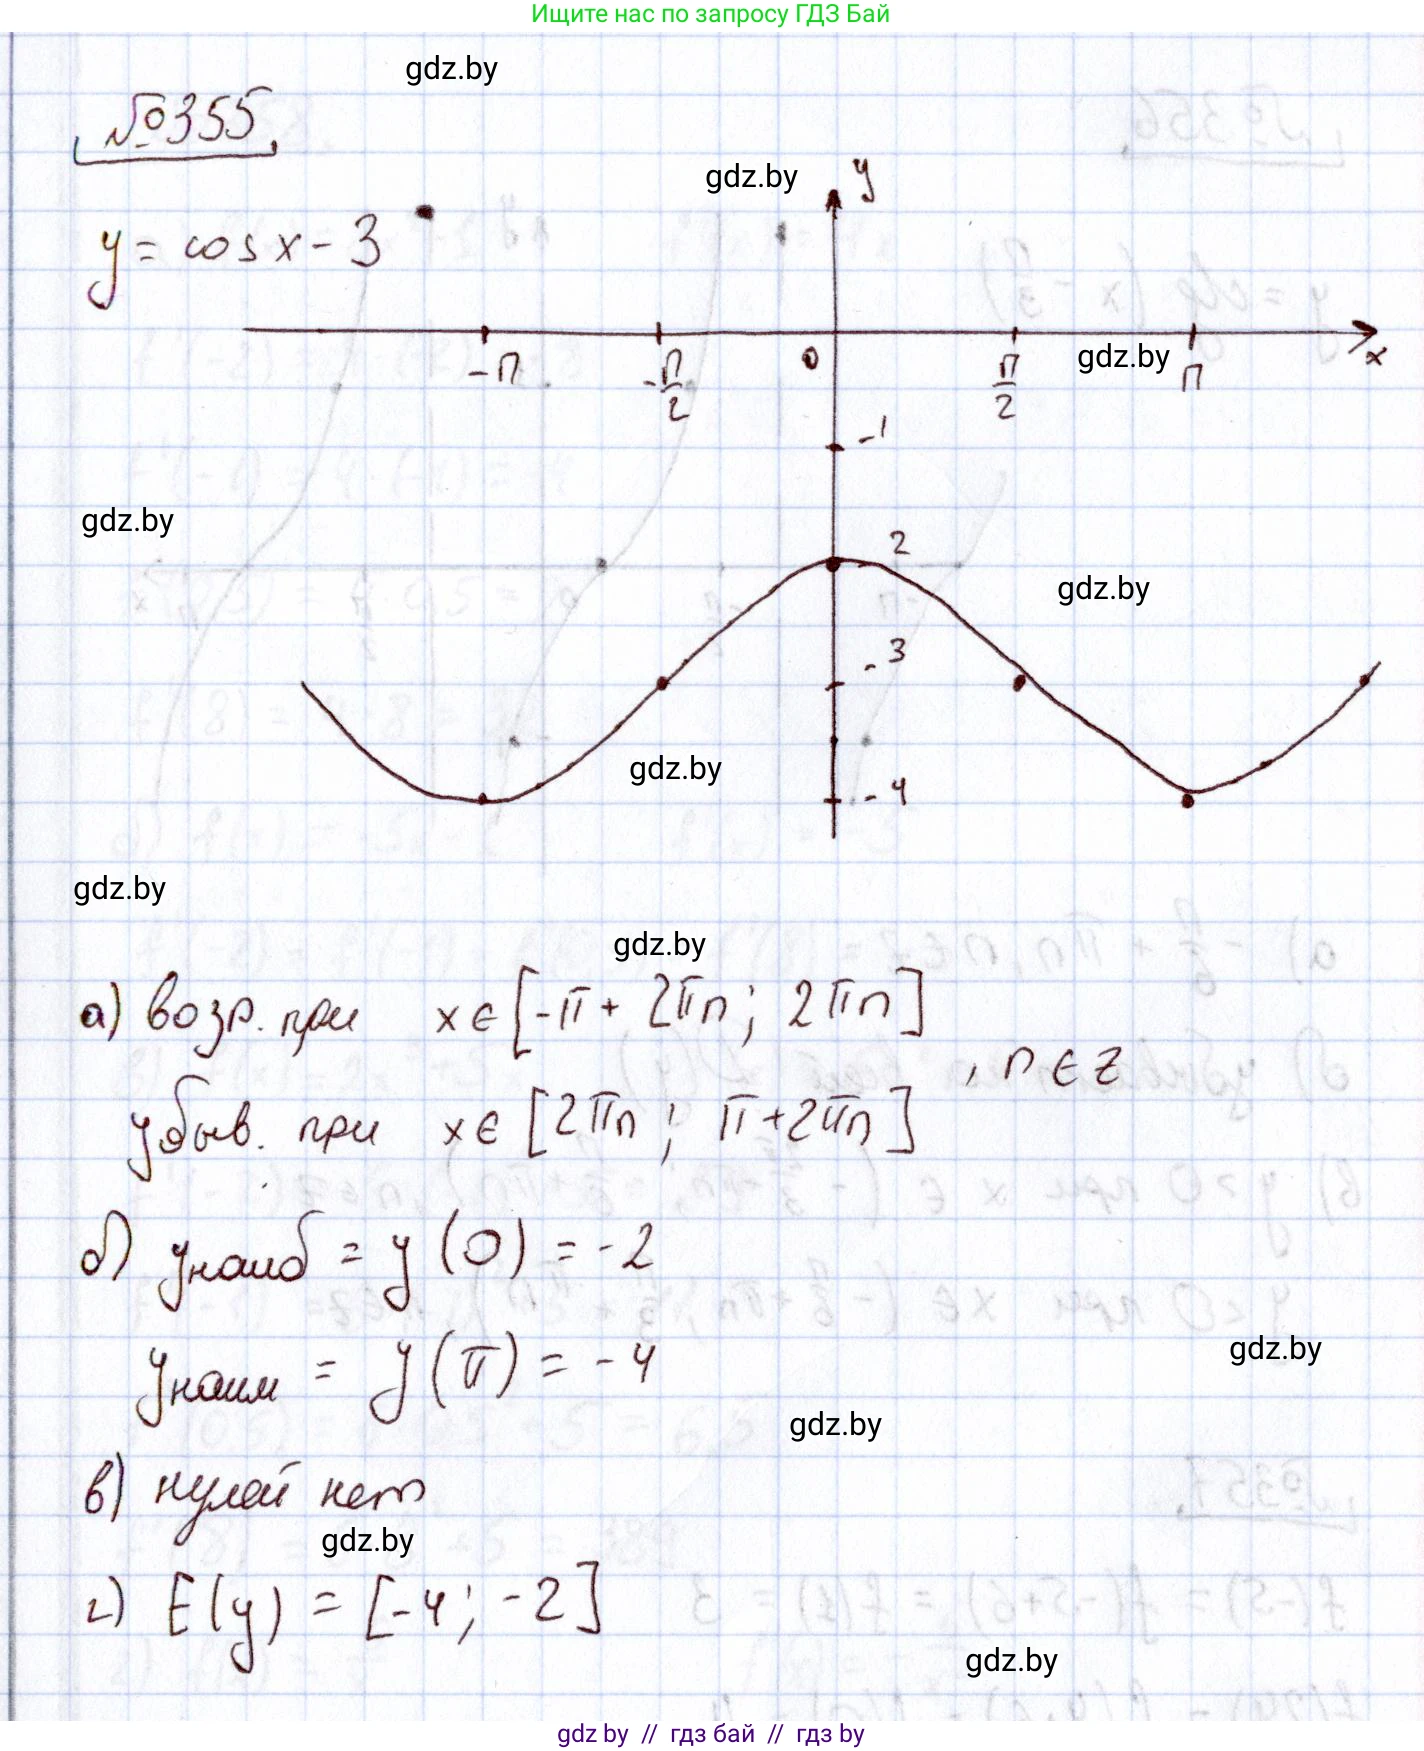 Ищите нас по запросу ГДЗ Бай
gdz.by
№355
gdz.by
y
y = cos x - 3
-π
-π/2
0
π/2
gdz.by
π
x
-1
gdz.by
2
gdz.by
-3
gdz.by
-4
gdz.by
gdz.by
а) возр. при x ∈ [-π + 2πn; 2πn]
, n ∈ Z
убыв. при x ∈ [2πn; π+2πn]
б) yнаиб = y(0) = -2
gdz.by
yнаим = y(π) = -4
gdz.by
в) нулей нет
gdz.by
г) E(y) = [-4; -2]
gdz.by
gdz by // гдз бай // гдз by